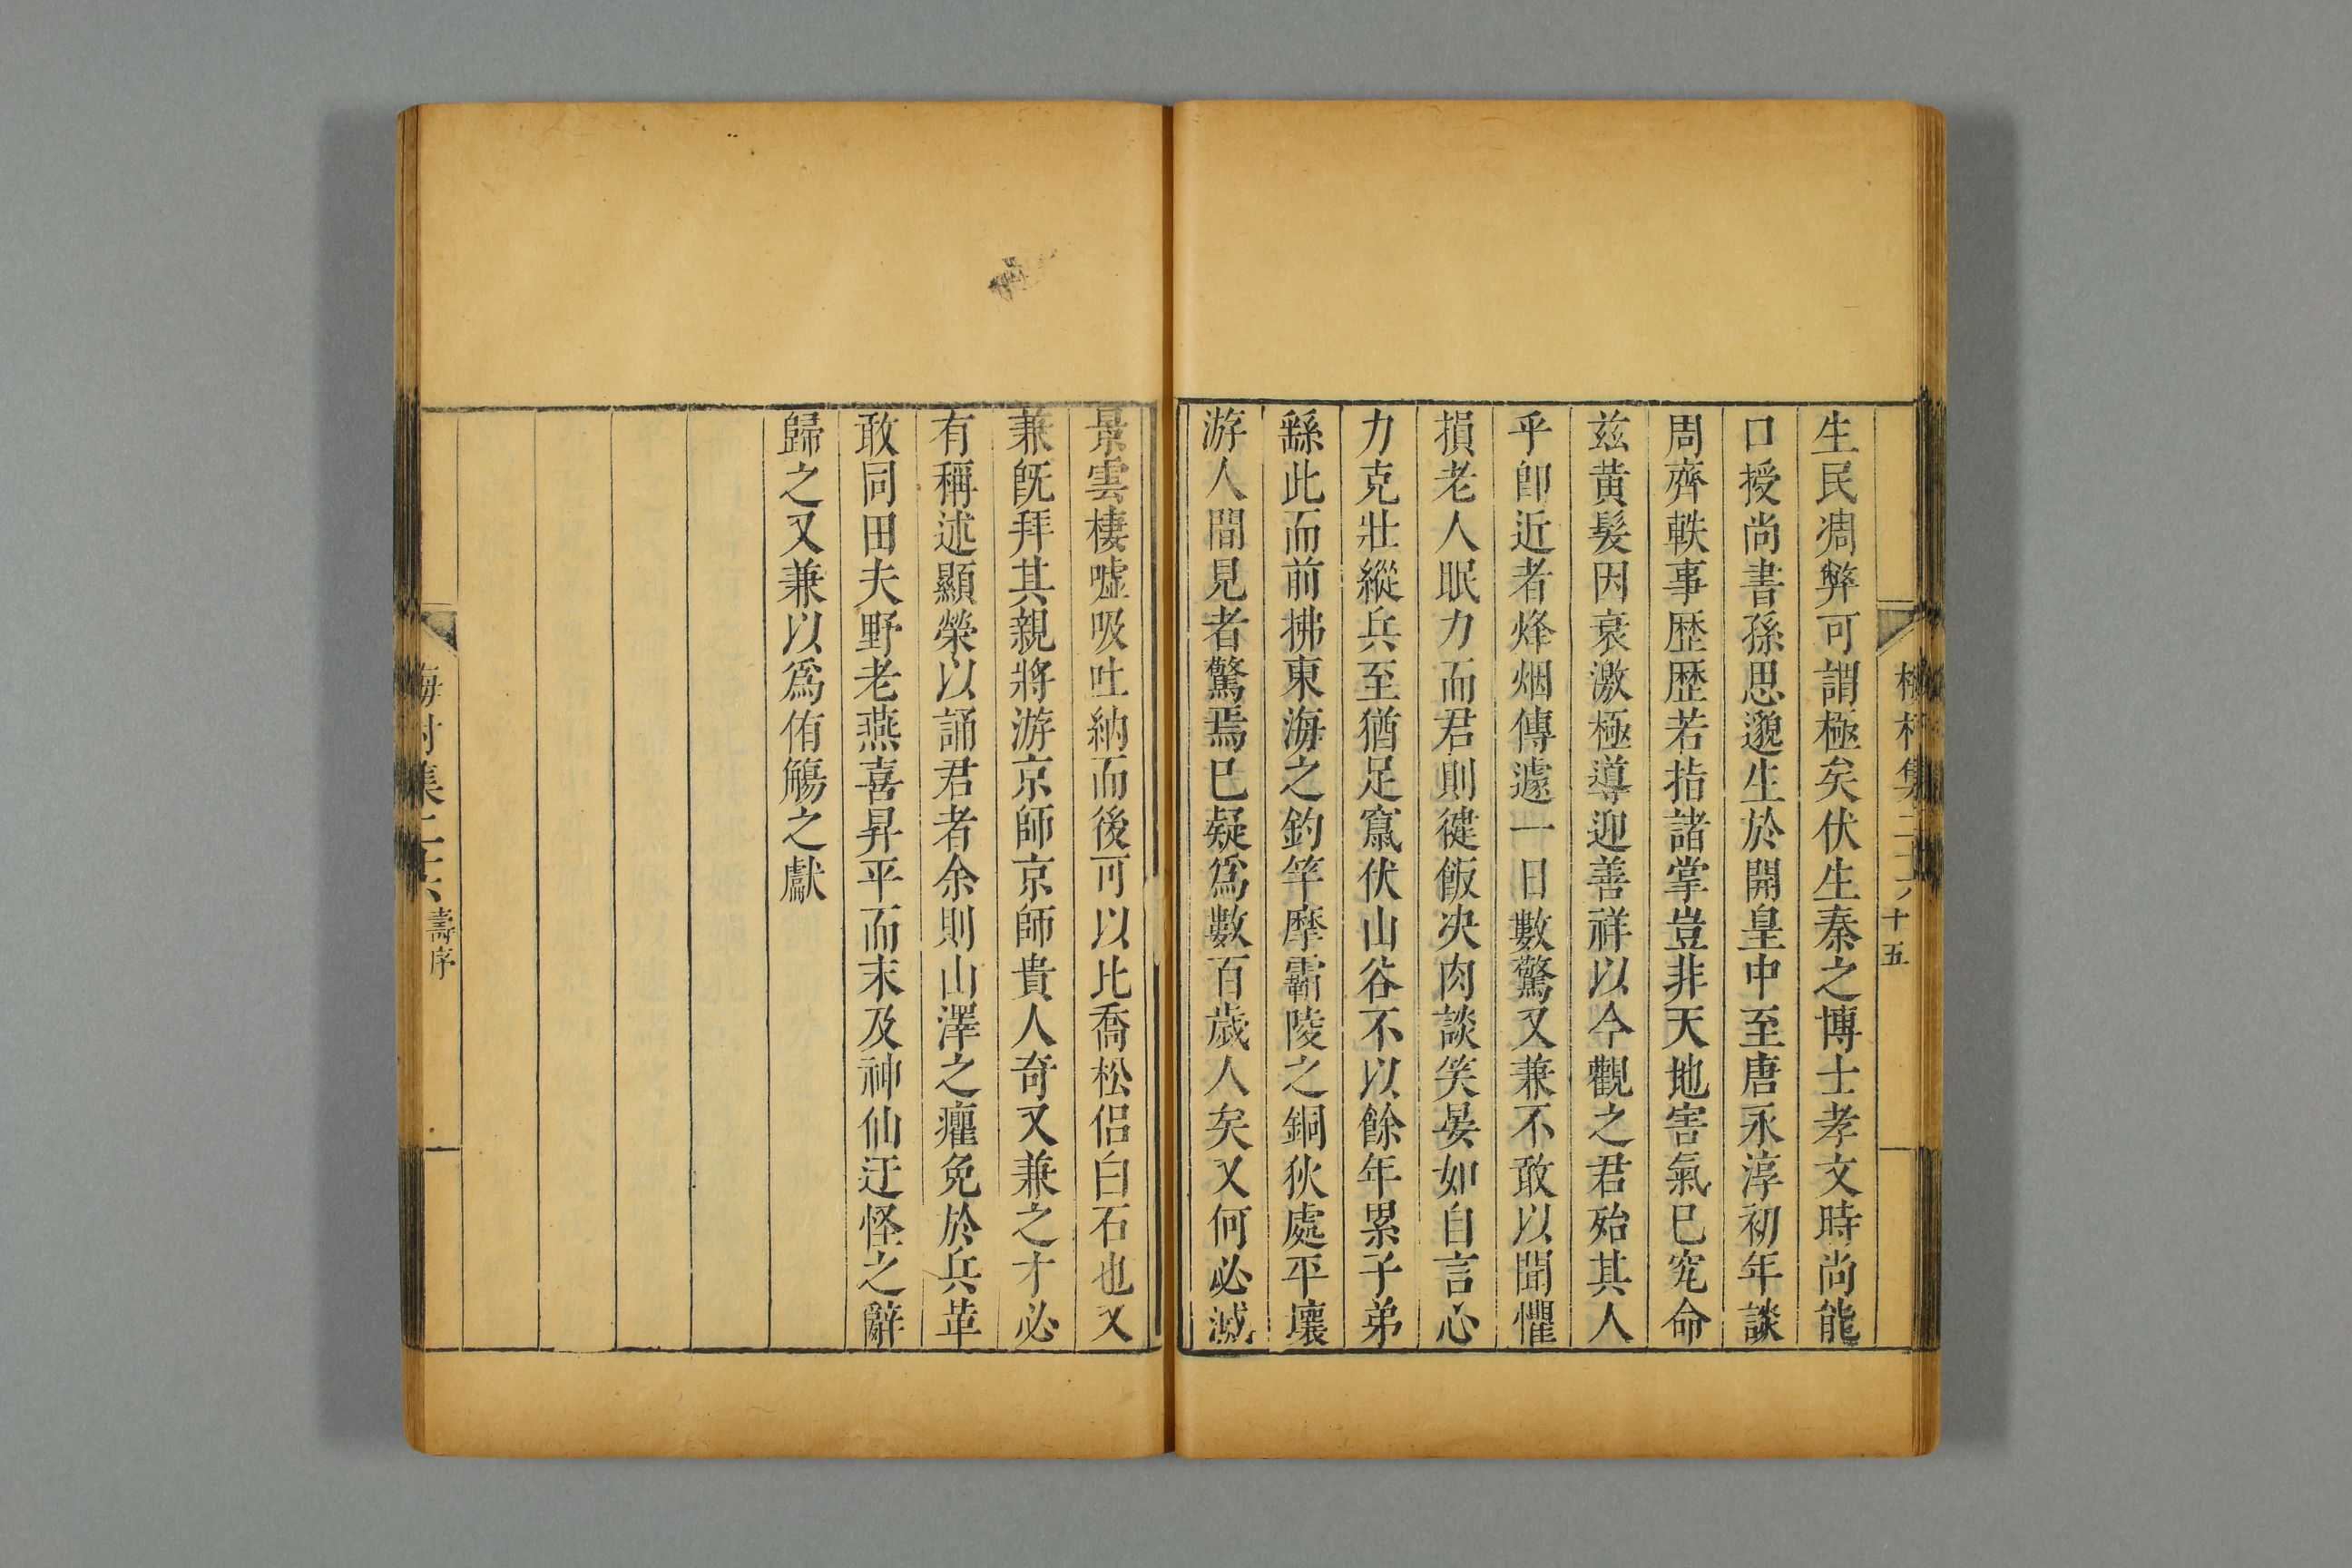 生民凋弊可謂極矣伏生秦之博士孝文時尚能
口授尚書孫思邈生於開皇中至唐永淳初年談
周齊軼事歷歷若指諸掌豈非天地害氣已究命
兹黄髮因衰激極導迎善祥以今觀之君殆其人
乎卽近者烽烟傳遽一日數驚又兼不敢以聞懼
損老人眠力而君則健飯决肉談笑晏如自言心
力克壯縱兵至猶足竄伏山谷不以餘年累子弟
繇此而前拂東海之釣竿摩霸陵之銅狄處平壤
游人間見者驚焉已疑爲數百歲人矣又何必滅
景雲棲嘘吸吐納而後可以比喬松侣白石也又
兼旣拜其親將游京師京師貴人奇又兼之才必
有稱述顯榮以誦君者余則山澤之癯免於兵革
敢同田夫野老燕喜昇平而末及神仙迂怪之辭
歸之又兼以爲侑觴之獻
集二十六
壽序
十五